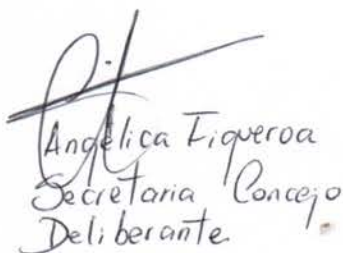 Angélica Figueroa
Secretaria Concejo
Deliberante